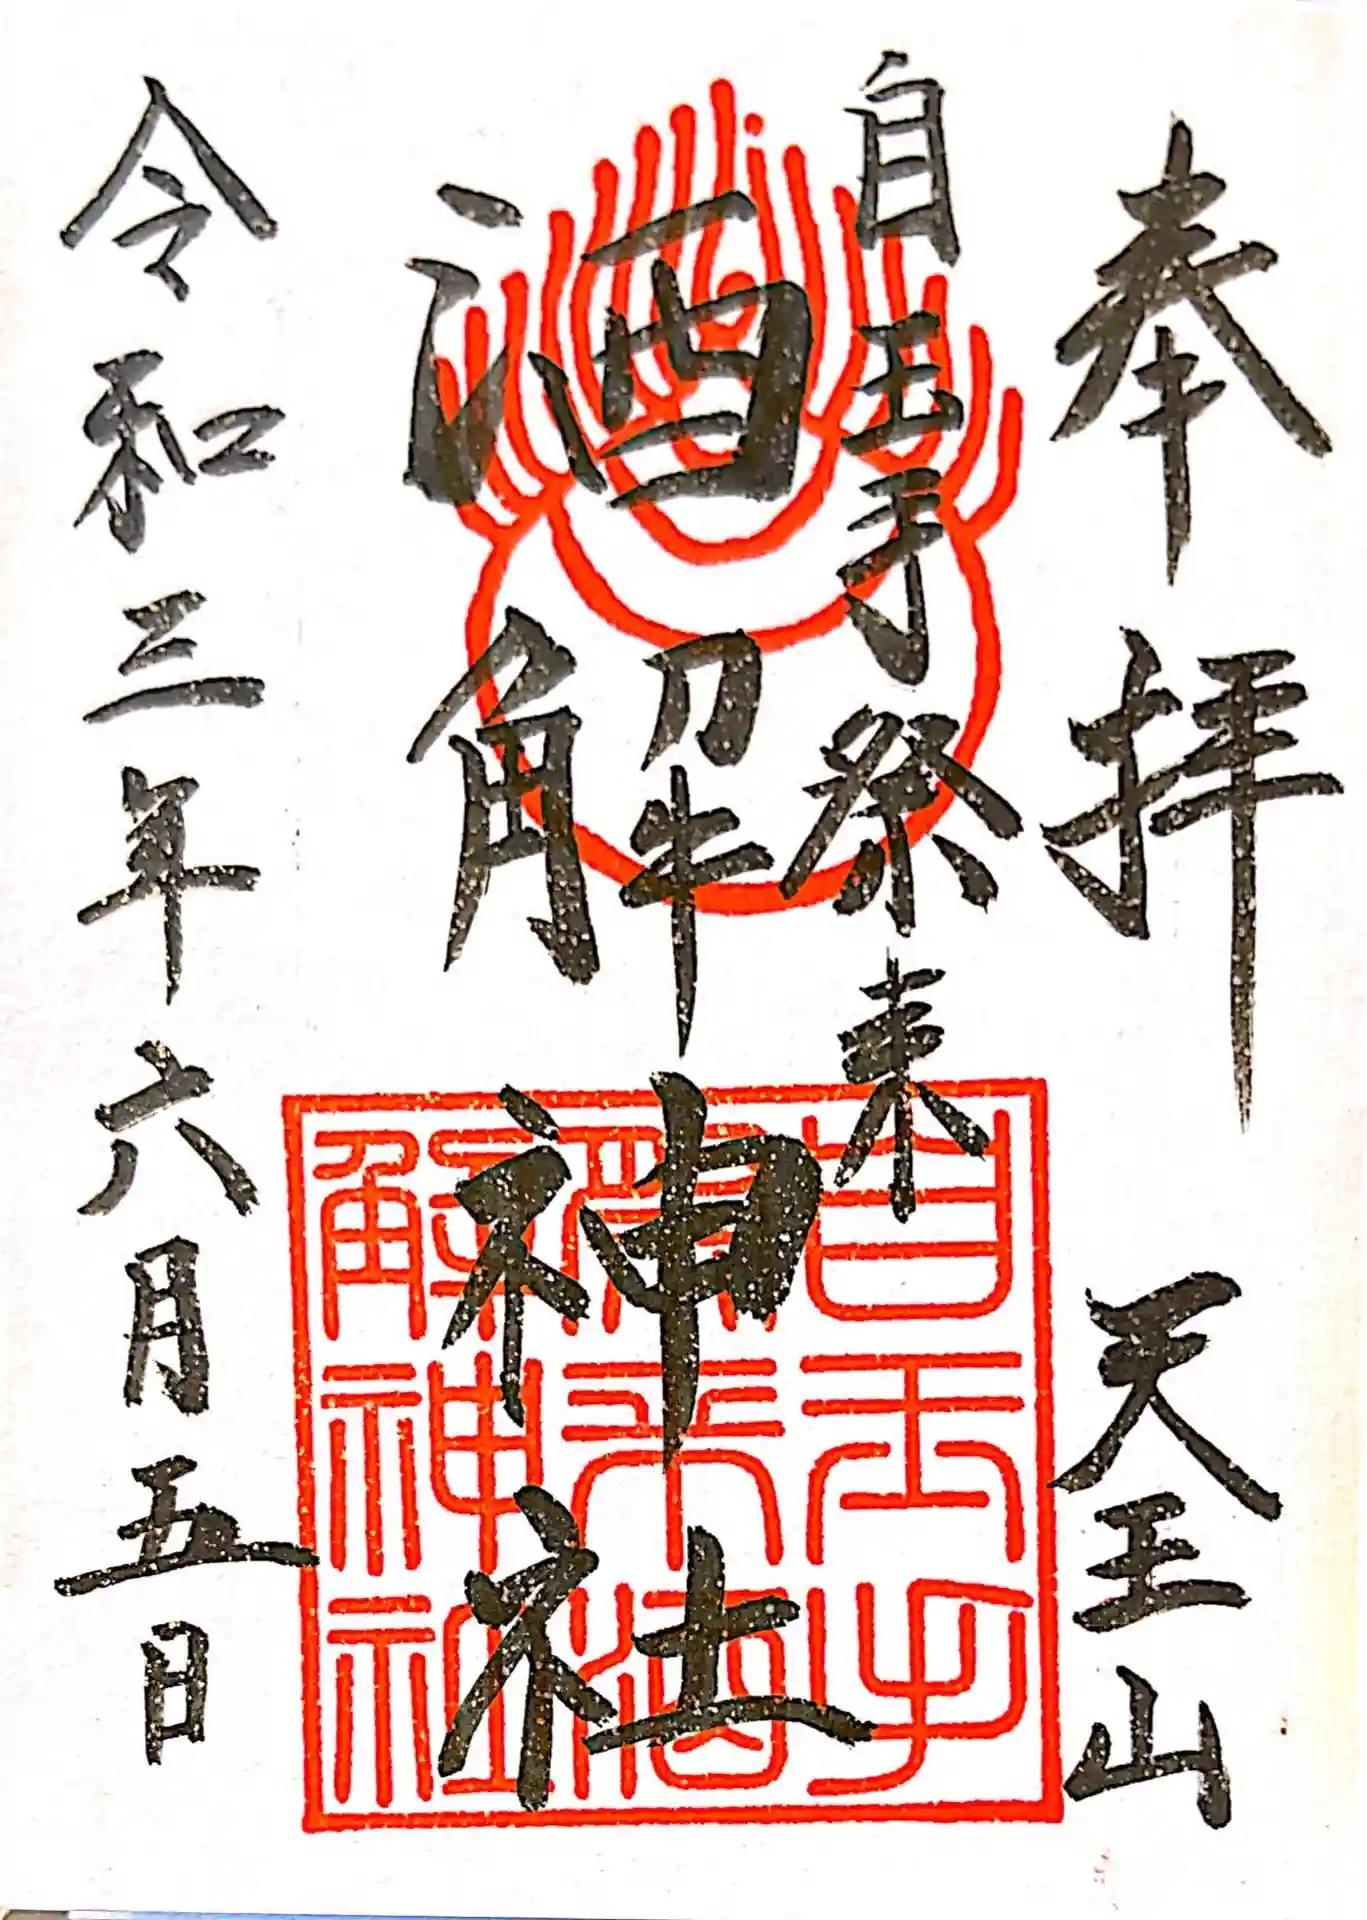 奉拝　天王山
自玉手祭来
酒解神社
令和三年六月五日
自玉手
祭来酒
解神社